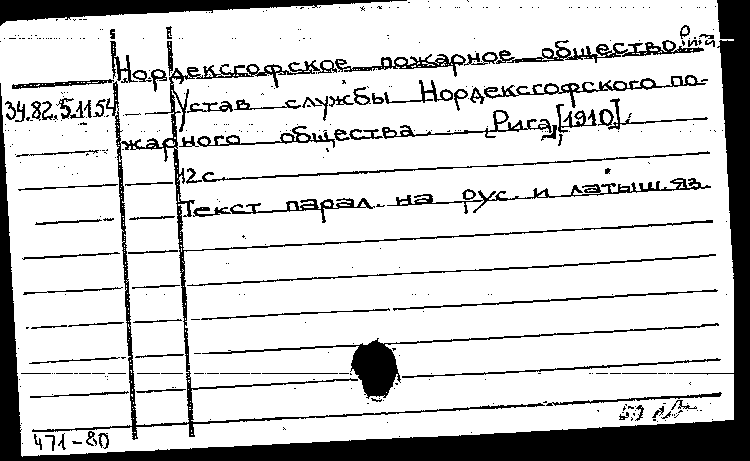 Нордексгофское пожарное общество.
34.82.5.1154 Устав службы Нордексгофского по-
жарного общества. [Рига], [1910].
12 с.
Текст парал. на рус. и латыш. яз.
471-80